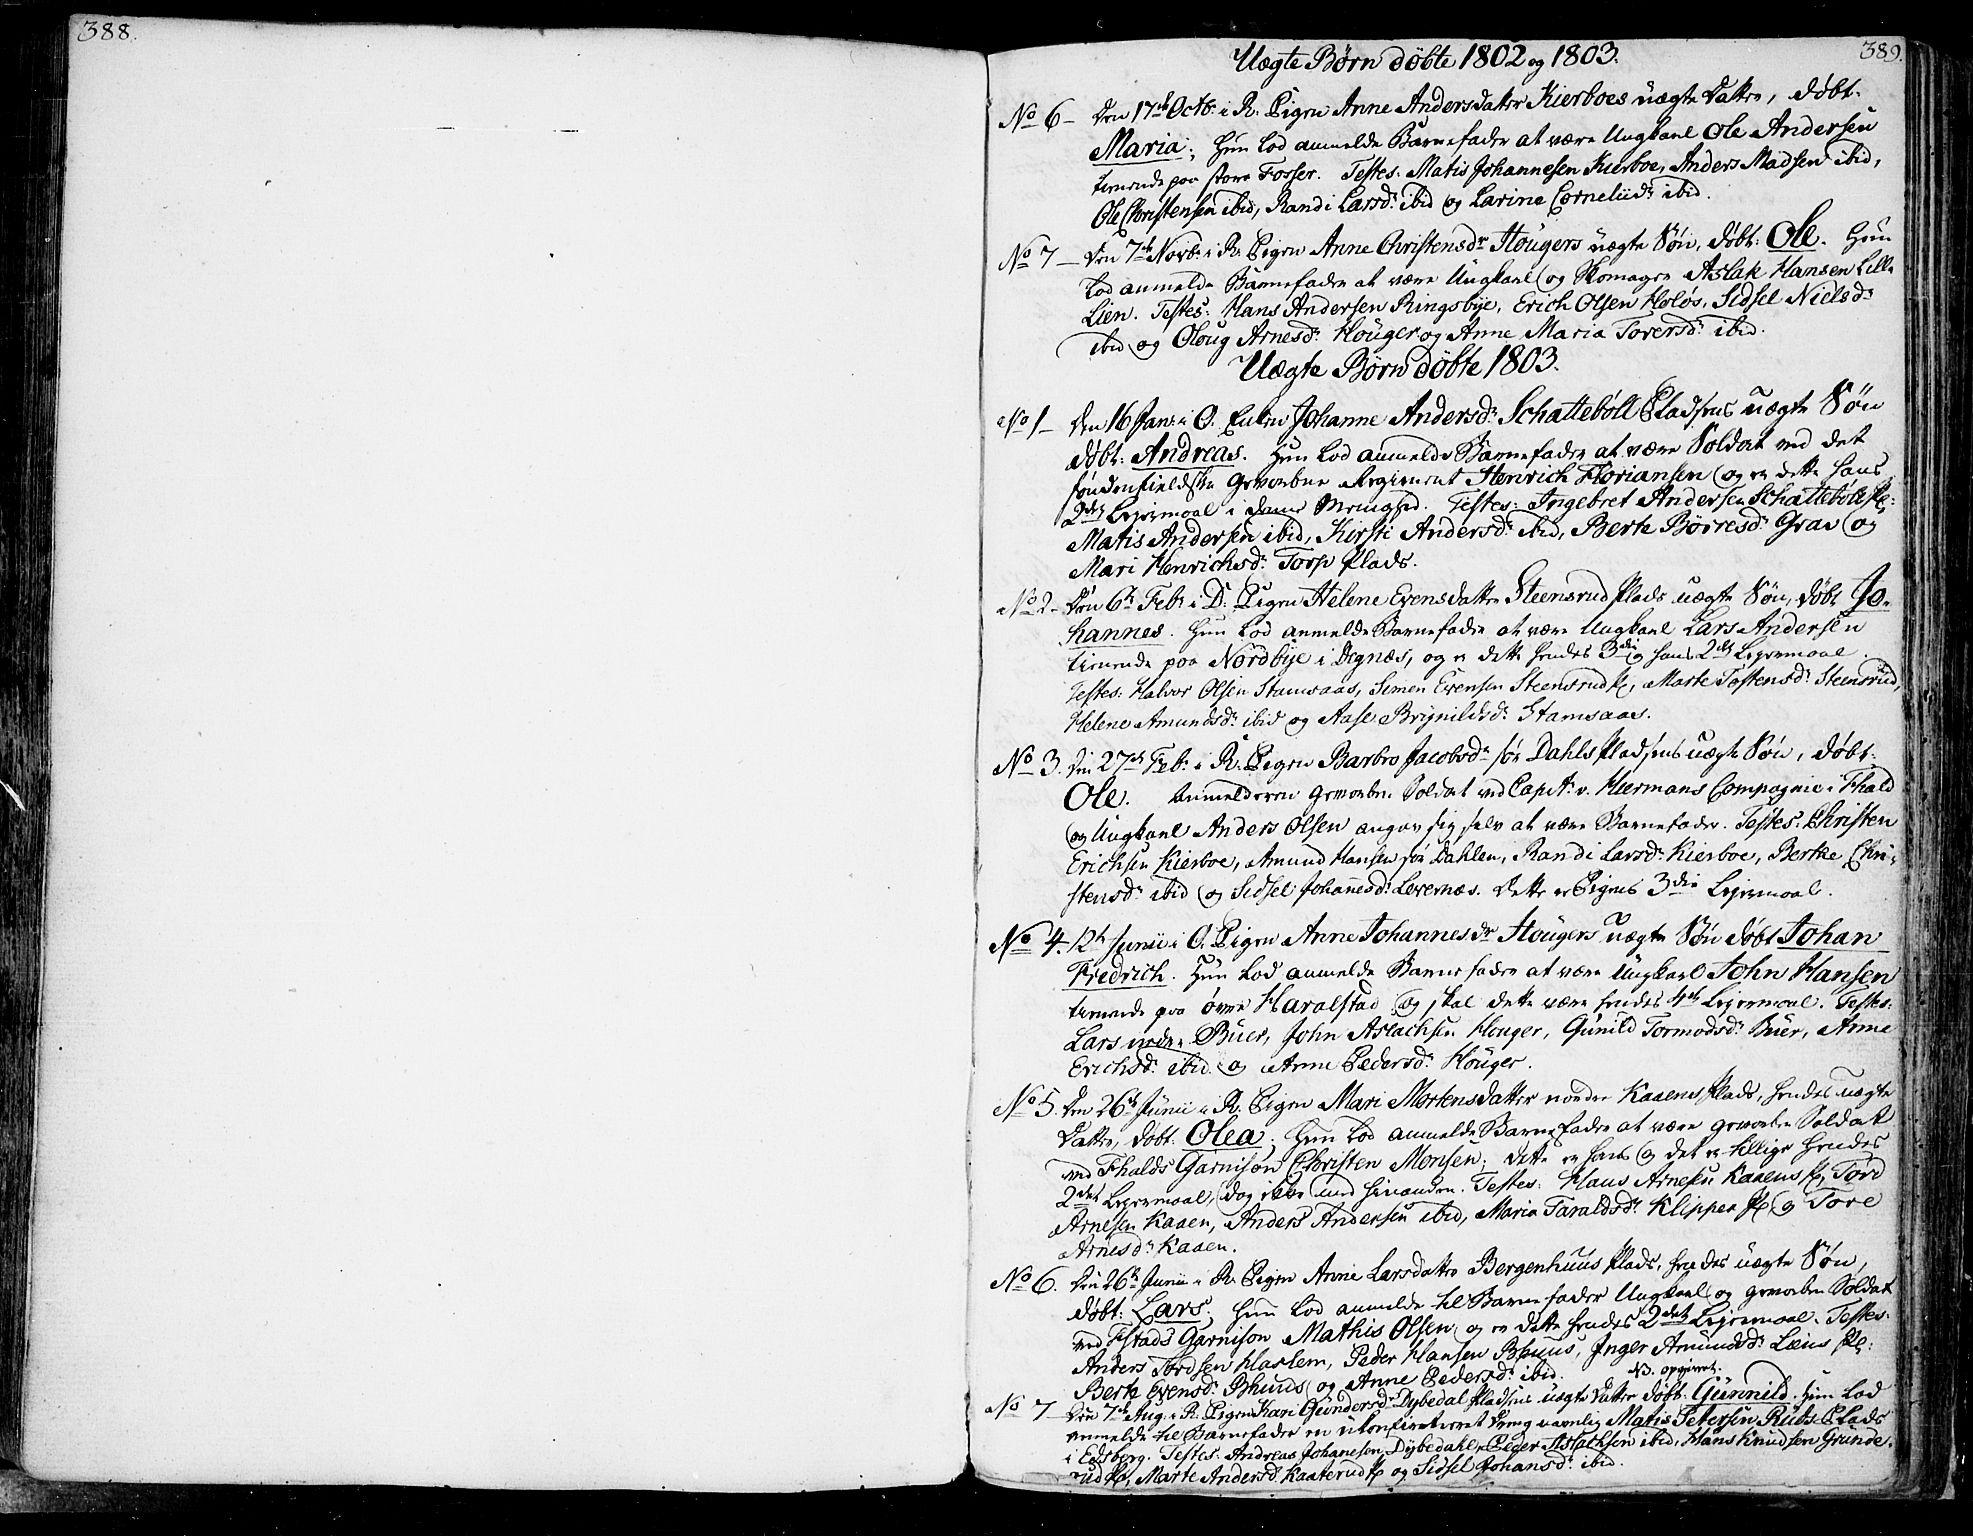 388.
389.
Uægte Børn døbte 1802 og 1803.
No 6 – Den 17de Octb: i R. Pigen Anne Andersdatter Kierboes uægte Datter, døbt:
Maria; Hun lod anmelde Barnefader at være Ungkarl Ole Andersen
tienende paa store Fosser. Testes: Matis Johannesen Kierboe, Anders Madsen ibid,
Ole Christensen ibid, Randi Larsdr: ibid og Larine Corneliidr: ibid.
No 7 – Den 7de Novb: i R. Pigen Anne Christensdr Hougers uægte Søn, døbt: Ole. Hun
lod anmelde Barnefader at være Ungkarl og Skomager Aslak Hansen Lille
Lien. Testes: Hans Andersen Ringsbye, Erich Olsen Holøs, Sidsel Nielsdr:
ibid og Oloug Arnesdr: Houger og Anne Maria Toresdr: ibid.
Uægte Børn døbte 1803.
No 1 – Den 16 Jan: i O. Enken Johanne Andersdr: Schattebøll Pladsens uægte Søn
døbt: Andreas. Hun lod anmelde Barnefader at være Soldat ved det
søndenfieldske Gevorbne Regiment Henrich Floriansen og er dette hans
2det Leiermaal i denne Menighed. Testes: Ingebret Andersen Schattebøll Pl:
Matis Andersen ibid, Kirsti Andersdr: ibid, Berte Børresdr: Grav og
Mari Henrichsdr: Torp Plads.
No 2 – Den 6te Feb: i D: Pigen Helene Evensdatter Steensrud Plads uægte Søn, døbt Jo-
hannes. Hun lod anmelde Barnefader at være Ungkarl Lars Andersen
tienende paa Nordbye i Degnæs, og er dette hendes 3die og hans 2det Leiermaal.
Testes: Halvor Olsen Stamsaas, Simen Evensen Steensrud Pl, Marte Tostensdr: Steensrud,
Helene Amundsdr: ibid og Aase Brynildsdr: Stamsaas.
No 3. Den 27de Feb: i R. Pigen Barbro Jacobsdr sør Dahls Pladsens uægte Søn, døbt:
Ole. Anmelderen Gevorben Soldat ved Capit: v. Heermans Compagnie i Fhald
og Ungkarl Anders Olsen angav sig selv at være Barnefader. Testes: Christen
Erichsen Kierboe, Amund Hansen sør Dahlen, Randi Larsdr: Kierboe, Berthe Chri-
stensdr: ibid og Sidsel Johanesdr: Levernæs. Dette er Pigens 3die Leiermaal.
No 4. 12te Junii i O. Pigen Anne Johannesdr Hougers uægte Søn døbt Johan
Fredrich. Hun lod anmelde Barnefader at være Ungkarl John Hansen
tienende paa øvre Haralstad og skal dette være hendes 4de Leiermaal. Testes:
Lars nedre Buer, John Aslachsen Houger, Gunild Tormodsdr: Buer, Anne
Erichsdr: ibid og Anne Pedersdr: Houger.
No 5. Den 26de Junii i R. Pigen Mari Mortensdatter nordre Kaaens Plads, hendes uægte
Datter, døbt: Olea; Hun lod anmelde Barnefader at være gevorben Soldat
ved Fhalds Garnison Christen Monsen; dette er hans og det er tillige hendes
2det Leiermaal, dog ikke med hinanden. Testes: Hans Arnesen Kaaens Pl, Tord
Arnesen Kaaen, Anders Andersen ibid, Maria Taraldsdr: Klipper Pl og Tore
Arnesdr: Kaaen.
No 6. Den 26de Junii i R. Pigen Anne Larsdatter Bergenhuus Plads, hendes uægte Søn,
døbt: Lars; Hun lod anmelde til Barnefader Ungkarl og gevorben Soldat
ved Fstads Garnison Mathis Olsen og er dette hendes 2det Leiermaal. Testes:
Anders Tordsen Harlem, Peder Hansen Bhuus, Inger Amundsdr: Læns Pl:
Berte Evensdr: Bhuus og Anne Pedersdr: ibid.
NB. opgivet.
No 7 Den 7de Aug: i R. Pigen Kari Gundersdr Dybedal Pladsens uægte Datter døbt: Gunnild. Hun lod
anmelde til Barnefader en ukonfirmeret Dreng navnlig Matis Petersen Ruds Plads
i Edsberg. Testes: Andreas Johanesen Dybedahl, Peder Aslachsen ibid, Hans Knudsen Grunde-
rud Pl, Marte Andersdr: Kaaterud Pl og Sidsel Johansdr: ibid.